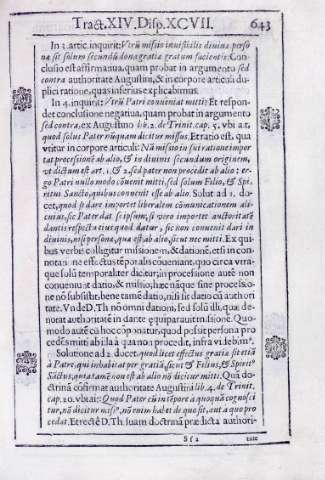 Tract. XIV. Disp. XCVII. 643
In 3. artic. inquirit: Vtrũ missio inuisibilis diuinæ perso
næ sit solum secundũ dona gratiæ gratum facientis: Con
clusio est affirmatiua, quam probat in argumento sed
contra authoritate Augustini, & in corpore articuli du-
plici ratione, quas inferius explicabimus.
In 4. inquirit: Vtrũ Patri conueniat mitti: Et respon
det conclusione negatiua, quam probat in argumento
sed contra, ex Augustino lib. 2. de Trinit. cap. 5. vbi ait,
quod solus Pater nũquam dicitur missus. Et ratio est, qua
vtitur in corpore articuli: Nã missio in sui ratione impor
tat processionẽ ab alio, & in diuinis secundum originem,
vt dictum est art. 1. & 2. sed pater non procedit ab alio: er-
go Patri nullo modo cõuenit mitti, sed solum Filio, & Spi
ritui Sancto, quibus conuenit esse ab alio. Solut. ad 1. do-
cet, quod si dare importet liberalem cõmunicationem ali
cuius, sic Pater dat se ipsum, si vero importet authoritatẽ
dantis respectu eius quod datur, sic non conuenit dari in
diuinis, nisi personæ, quæ est ab alio, sicut nec mitti. Ex qui
bus verbis colligitur missionem, & datione, etsi in conno-
tatione effectus tẽporalis coueniant, quo circa vtra
que solũ temporaliter dicitur, in processione autẽ non
conueniut datio, & missio, hæc nãque sine processio
ne nõ subsistit, bene tamẽ datio, nisi sit datio cũ authori
tate. Vnde D. Th. nõ omni dationi, sed soli illi, quæ de-
notat authoritatẽ in dante equiparauit missionẽ. Quo-
modo autẽ cũ hoc cõponatur, quod possit persona pro
cedẽs mitti ab illa à qua non procedit, infra videbim9.
Solutione ad 2. docet, quod licet effectus gratiæ sit etiã
à Patre, qui inhabitat per gratiã, sicut & Filius, & Spirit9
Sãctus, quia tamẽ non est ab alio nõ dicitur mitti. Quã do-
ctrinã cõfirmat authoritate Augustini lib. 4. de Trinit.
cap. 20. vbi ait: Quod Pater cũ in tẽpore à quoquã cognosci
tur, nõ dicitur miss9, nõ enim habet de quo sit, aut à quo pro
cedat. Et rectè D. Th. suam doctrinã prædicta authori-
Sf 2 tate